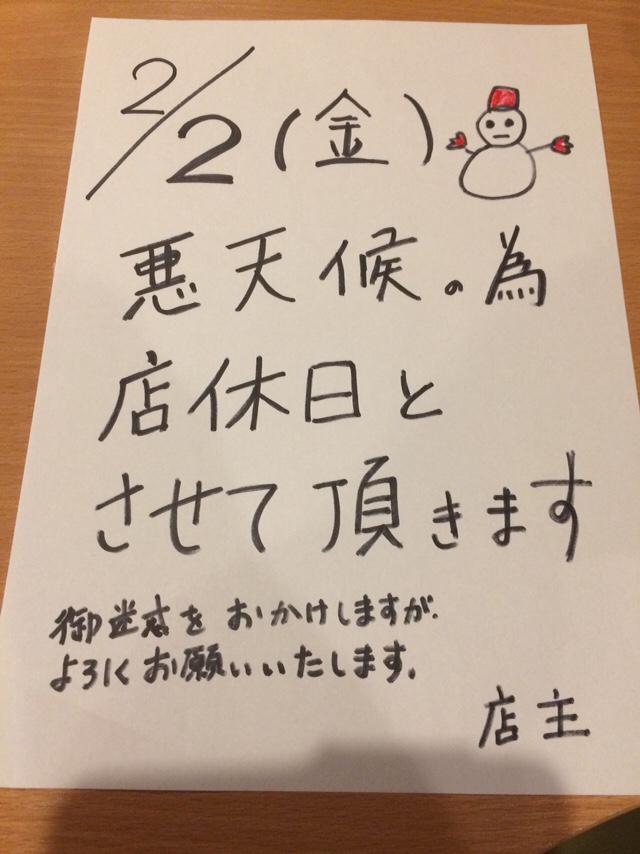 2/2(金)
悪天候の為
店休日と
させて頂きます
御迷惑を おかけしますが.
よろしくお願いいたします.
店主